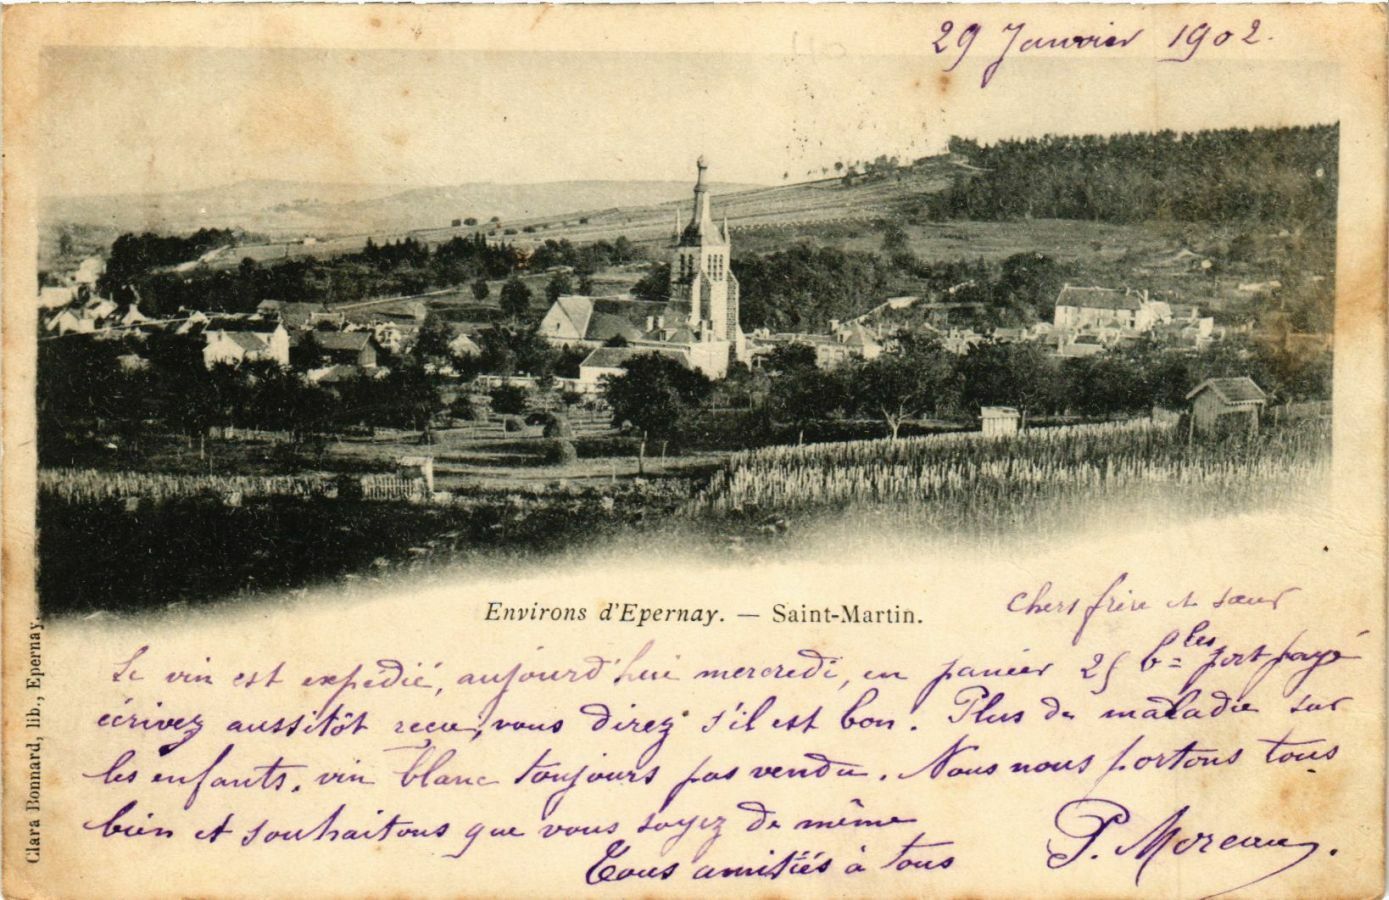 29 Janvier 1902.
Environs d'Epernay. — Saint-Martin.
chers frère et sœur
Le vin est expédié, aujourd'hui mercredi, en panier 25 b<sup>les</sup> port payé
écrivez aussitôt recu, vous direz s'il est bon. Plus de maladie sur
les enfants, vin blanc toujours pas vendu. Nous nous portons tous
bien et souhaitons que vous soyez de même
Tous amitiés à tous
P. Moreau.
Clara Bonnard, lib., Epernay.